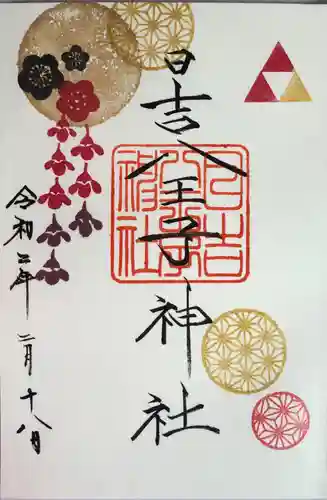 日吉八王子神社
日吉
八王子
神社
令和二年 二月十八日